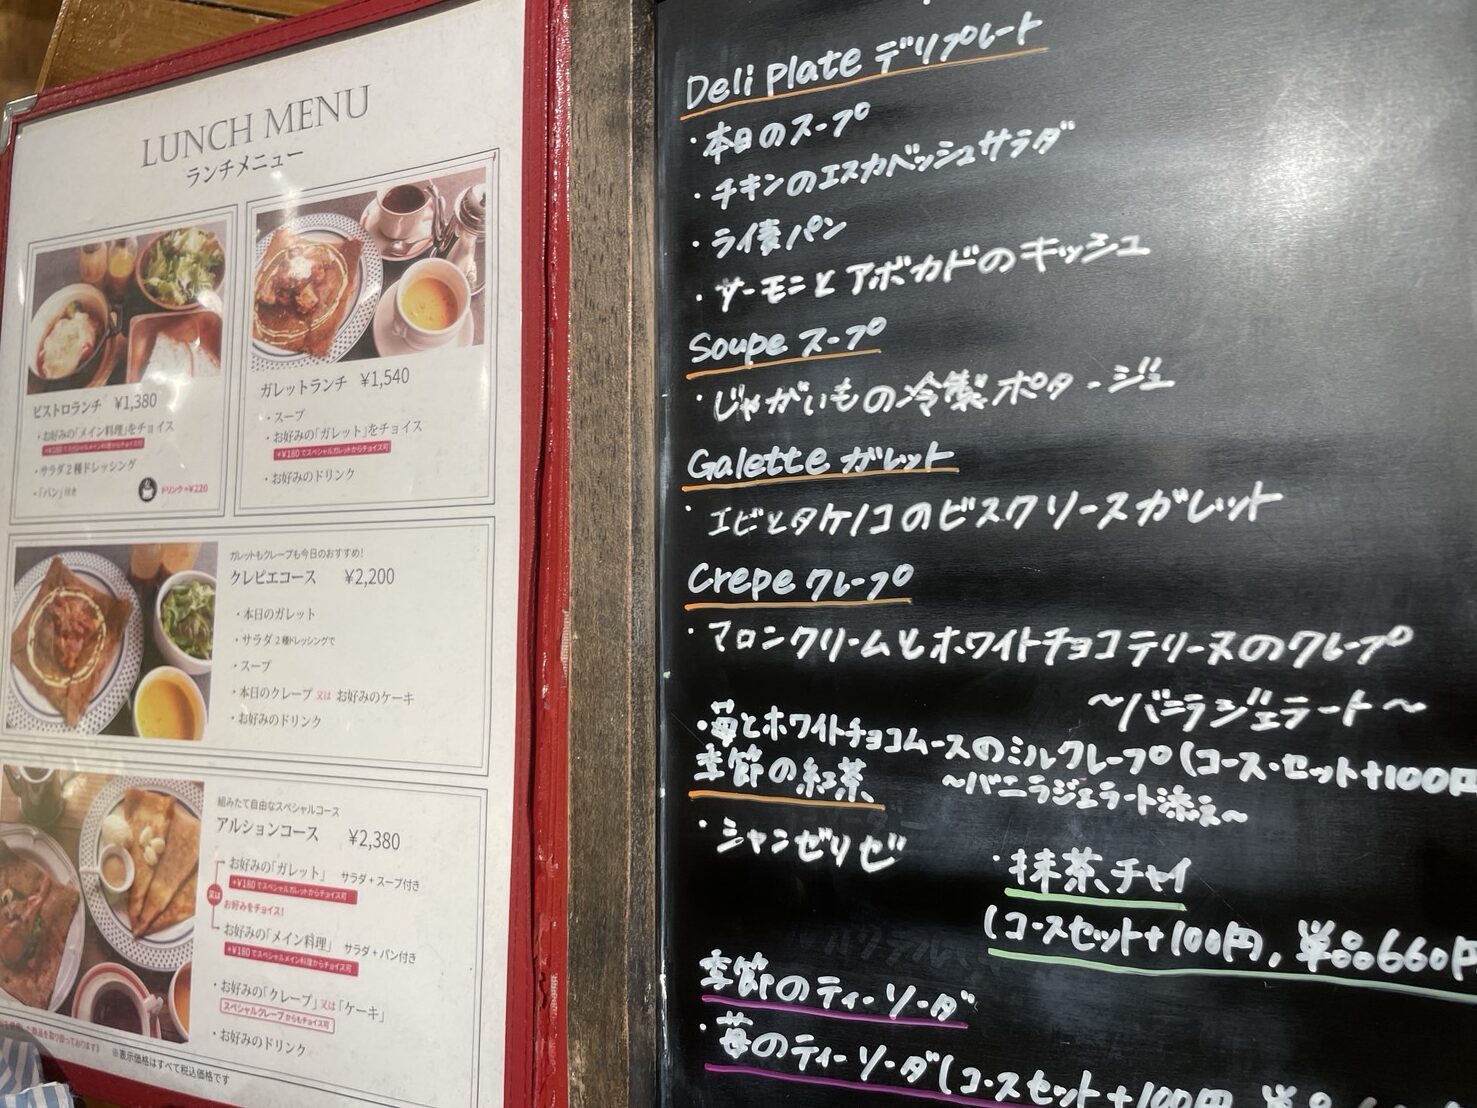 LUNCH MENU
ランチメニュー
ビストロランチ ¥1,380
・お好みの「メイン料理」をチョイス
+¥180でスペシャルメイン料理からチョイス可
・サラダ2種ドレッシング
・「パン」付き
ドリンク+¥220
ガレットランチ ¥1,540
・スープ
・お好みの「ガレット」をチョイス
+¥180でスペシャルガレットからチョイス可
・お好みのドリンク
ガレットもクレープも今日のおすすめ!
クレピエコース ¥2,200
・本日のガレット
・サラダ2種ドレッシングで
・スープ
・本日のクレープ 又は お好みのケーキ
・お好みのドリンク
組みたて自由なスペシャルコース
アルションコース ¥2,380
お好みの「ガレット」 サラダ+スープ付き
+¥180でスペシャルガレットからチョイス可
又は お好みをチョイス!
お好みの「メイン料理」 サラダ+パン付き
+¥180でスペシャルメイン料理からチョイス可
・お好みの「クレープ」又は「ケーキ」
スペシャルクレープからもチョイス可
・お好みのドリンク
※表示価格はすべて税込価格です
Deli Plate デリプレート
・本日のスープ
・チキンのエスカベッシュサラダ
・ライ麦パン
・サーモンとアボカドのキッシュ
Soupe スープ
・じゃがいもの冷製ポタージュ
Galette ガレット
・エビとタケノコのビスクソースガレット
Crepe クレープ
・マロンクリームとホワイトチョコテリーヌのクレープ
〜バニラジェラート〜
・苺とホワイトチョコムースのミルクレープ(コース・セット+100円
〜バニラジェラート添え〜
季節の紅茶
・シャンゼリゼ
・抹茶チャイ
(コースセット+100円、単品660円
季節のティーソーダ
・苺のティーソーダ(コースセット+100円